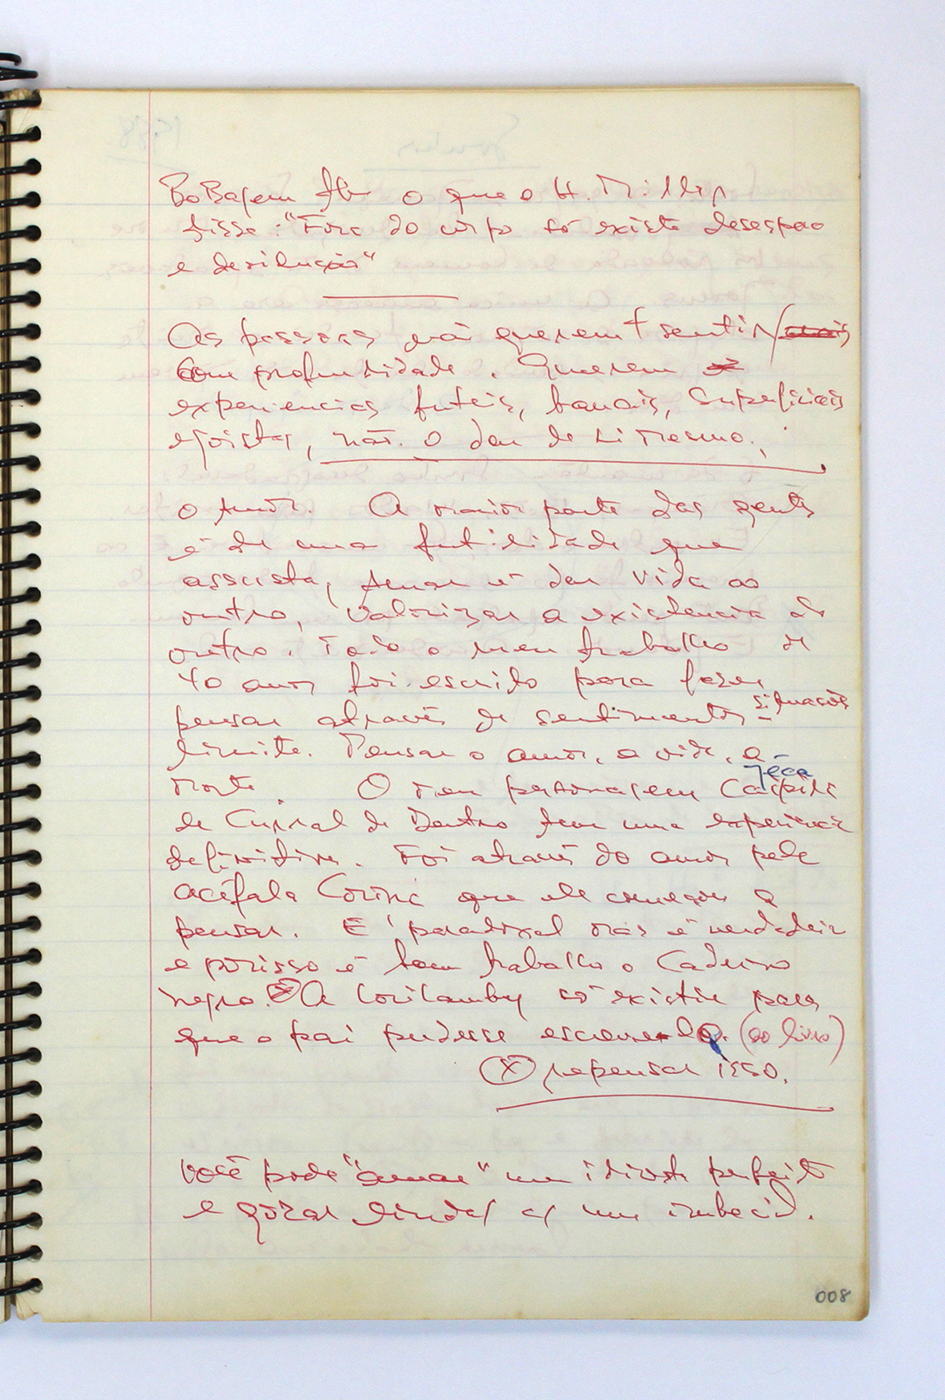 BoBagem o que o H. Miller
disse: "Fora do corpo só existe desespero
e desilusão"
As pessoas não querem + sentir
com profundidade. Querem
experiencias futeis, banais, superficiais
egoistas, não. o dar de si mesmo.
O Amor. A maior parte das gentes
é de uma futilidade que
assusta, Amar é dar vida ao
outro, valorizar a existencia do
outro. Todo o meu trabalho de
40 anos foi escrito para fazer
pensar através de sentimentos situações
limite. Pensar o amor, a vida, a
morte. O meu personagem Jéca
de Curral de Dentro tem uma experiencia
definitiva. Foi através do amor pela
acéfala que ele começou a
pensar. É paradoxal mas é verdadeiro
e porisso é bom trabalho o Caderno
negro. (x) A Lorilamby só existiu para
que o pai pudesse escreve-lo. (ao livro)
(x) repensar isso.
Você pode "amar" um idiota perfeito
e gozar lindas cs um imbecil.
008